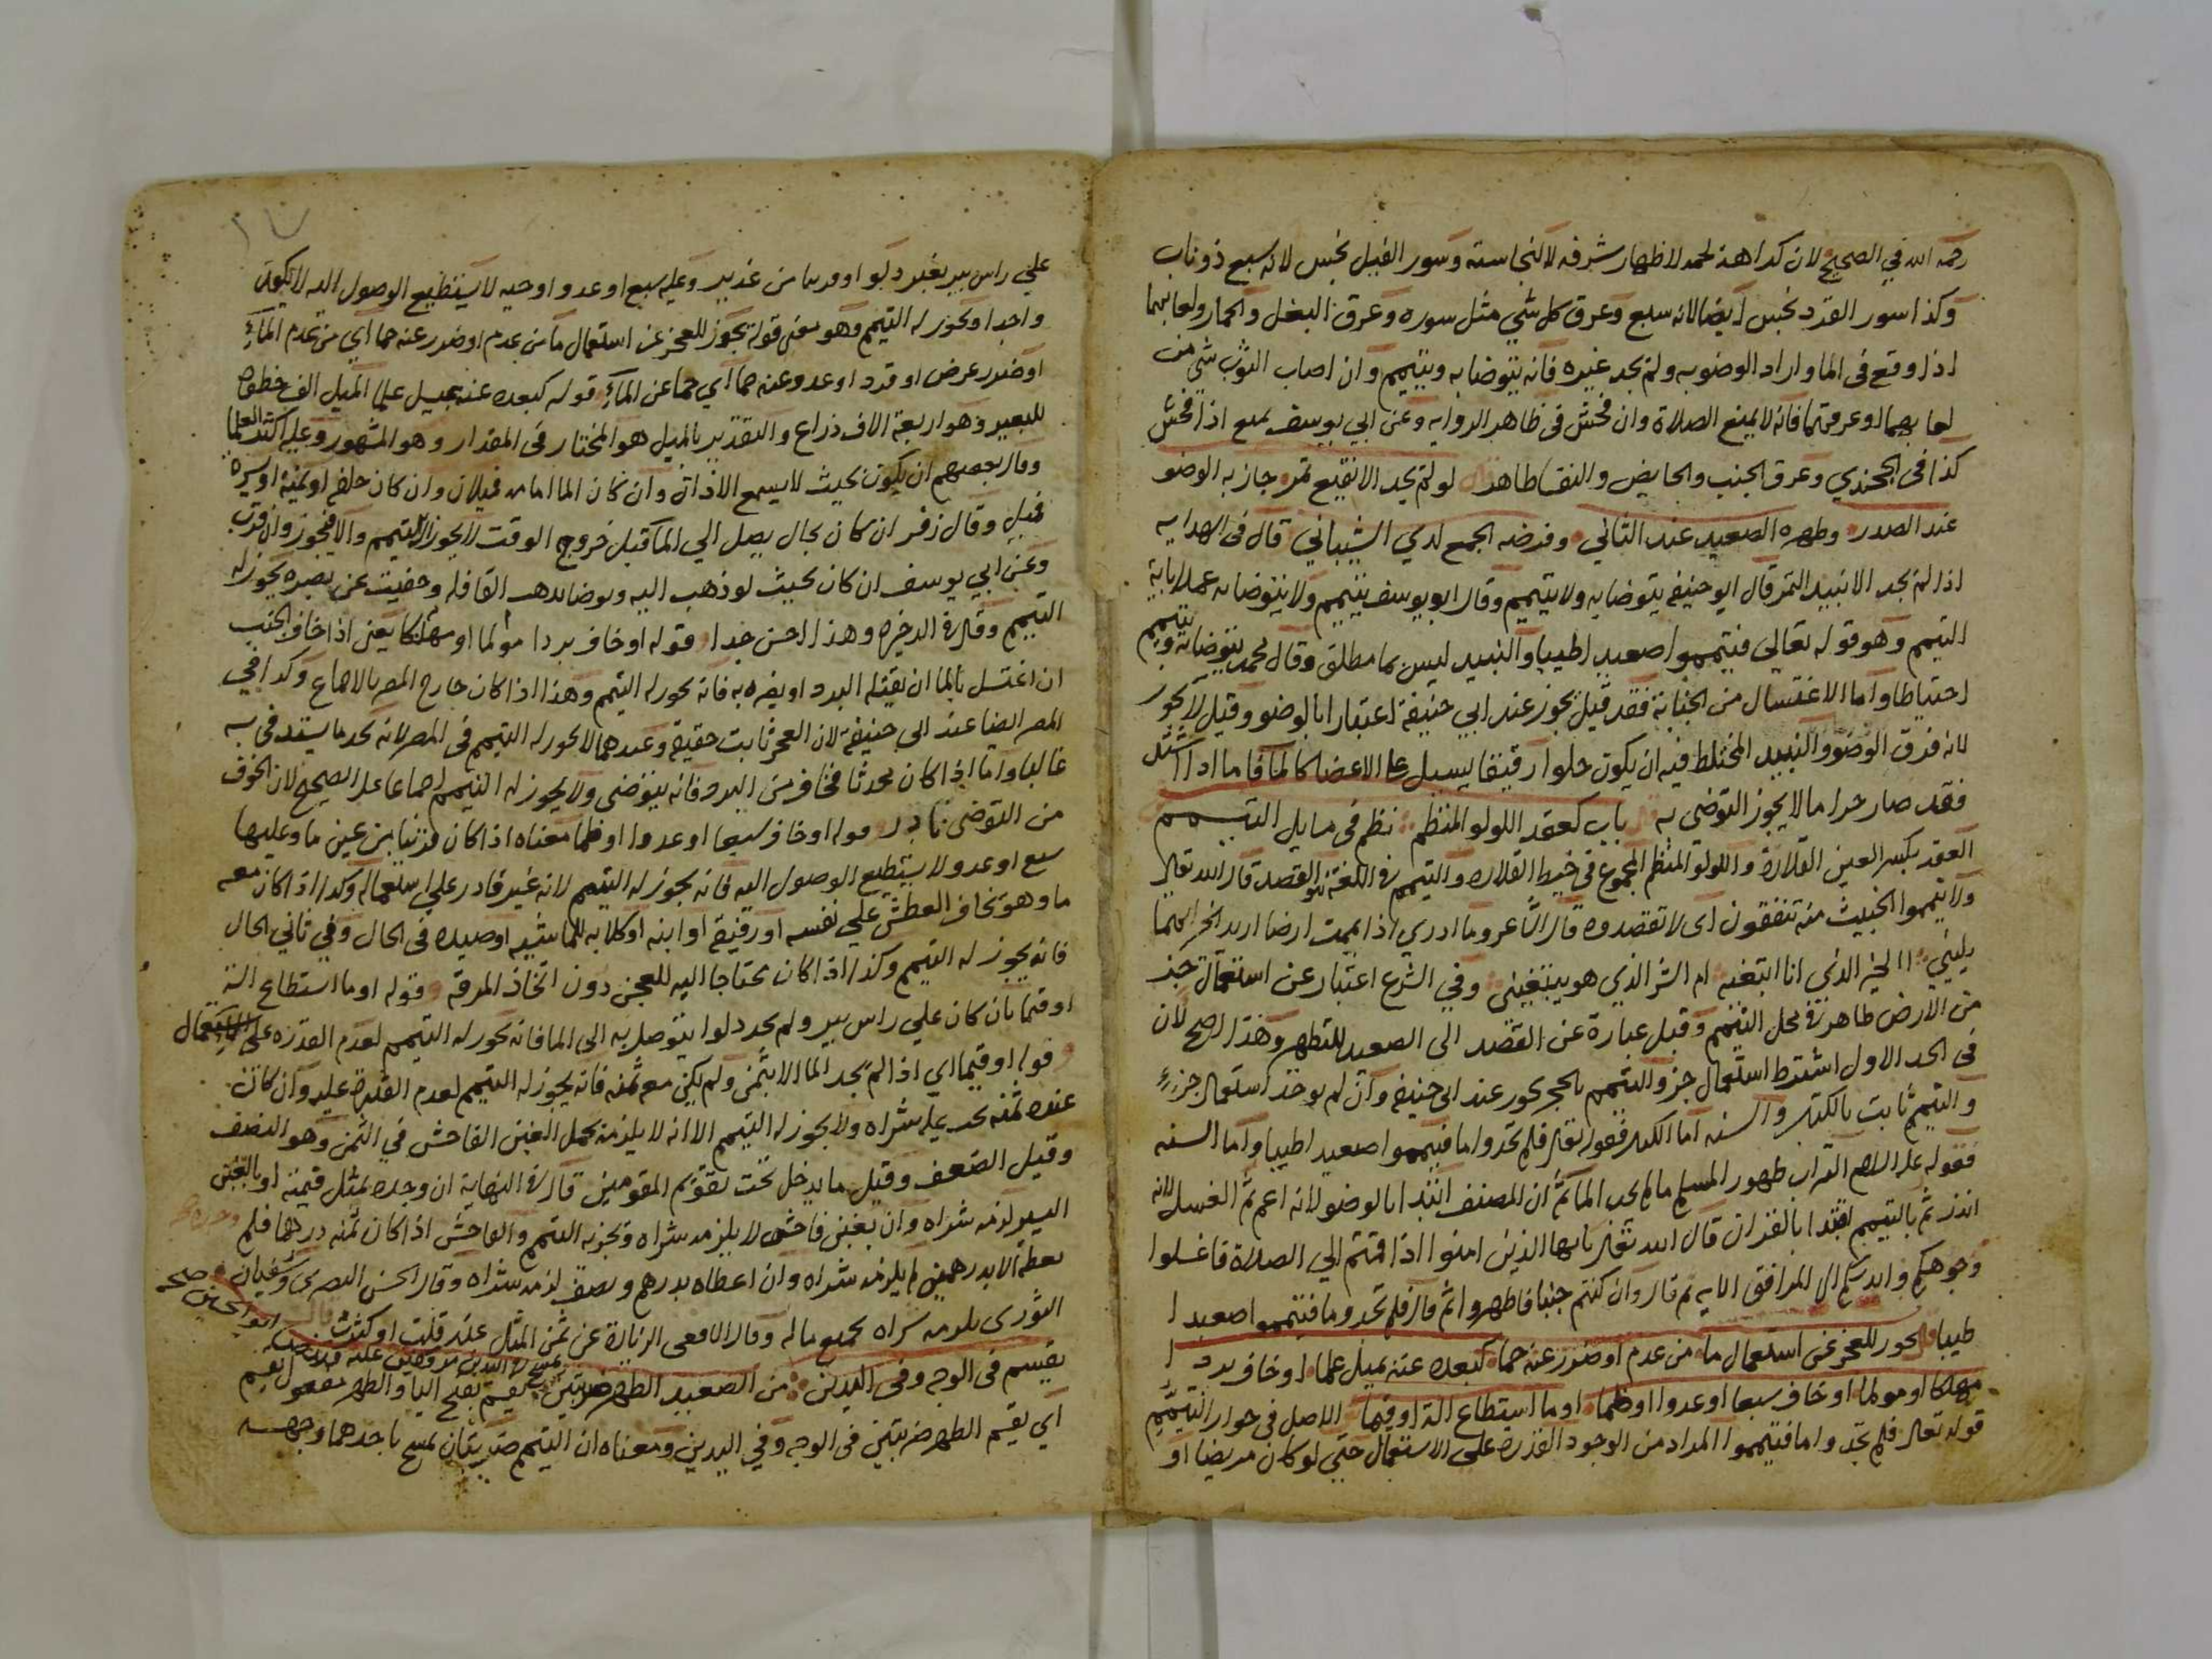 رحمه الله في الصحيح لان كراهة لحمه لاظهار شرفه لا لنجاسته وسور الفيل نجس لانه سبع ذو ناب
وكذا سور القرد نجس ايضا لانه سبع وعرق كل شي مثل سوره وعرق البغل والحمار ولعابهما
اذا وقع في الما واراد الوضو به ولم يجد غيره فانه يتوضا به ويتيمم وان اصاب الثوب شي من
لعابهما او عرقهما فانه لا يمنع الصلاة وان فحش في ظاهر الرواية وعن ابي يوسف يمنع اذا فحش
كذا في الخجندي وعرق الجنب والحايض والنفسا طاهر قال لو لم يجد الا نقيع تمر جاز به الوضو
عند الصدر وطهره الصعيد عند الثاني وفرضه الجمع لدي الشيباني قال في الهدايه
اذا لم يجد الا نبيذ التمر قال ابو حنيفه يتوضا به ولا يتيمم وقال ابو يوسف يتيمم ولا يتوضا به عملا باية
التيمم وهو قوله تعالي فتيمموا صعيدا طيبا والنبيد ليس بما مطلق وقال محمد يتوضا به ويتيمم
احتياطا واما الاغتسال من الجنابة فقد قيل يجوز عند ابي حنيفة اعتبارا بالوضو وقيل لا يجوز
لانه فوق الوضو والنبيد المختلط فيه ان يكون حلوا رقيقا يسيل علي الاعضا كالما فاما اذا اشتد
فقد صار حراما لا يجوز التوضي به باب كعقد اللولو المنظم نظم في مسايل التيمم
العقد بكسر العين القلادة واللولو المنظم المجموع في خيط القلاده والتيمم في اللغة هو القصد قال الله تعالي
ولا تيمموا الخبيث منه تنفقون اي لا تقصدوه قال الشاعر وما ادري اذا يممت ارضا اريد الخير ايهما
يليني االخير الذي انا ابتغيه ام الشر الذي هو يبتغيني وفي الشرع اعتبار عن استعمال جز
من الارض طاهر في محل التيمم وقيل عبارة عن القصد الى الصعيد للتطهر وهذا اصح لان
في الحد الاول اشترط استعمال جز والتيمم بالحجر يجوز عند ابي حنيفة وان لم يوخذ استعمال جزء
والتيمم ثابت بالكتاب والسنه اما الكتاب فقوله تعالي فلم تجدوا ما فتيمموا صعيدا طيبا واما السنه
فقوله عليه السلام التراب طهور المسلم ما لم يجد الما ثم ان المصنف ابتدا بالوضو لانه اعم ثم الغسل لانه
اندر ثم بالتيمم اقتدا بالقران قال الله تعالي يا ايها الذين امنوا اذا قمتم الي الصلاة فاغسلوا
وجوهكم وايديكم الى المرافق الايه ثم قال وان كنتم جنبا فاطهروا ثم قال فلم تجدوا ما فتيمموا صعيدا
طيبا قال يجوز للعجز عن استعمال ما من عدم او ضرر عنه حما كبعده عنه بميل علما او خاف بردا
مهلكا او مولما او خاف سبعا او عدوا او ظما او ما استطاع الة او قيما الاصل في جواز التيمم
قوله تعالى فلم تجدوا ما فتيمموا المراد من الوجود القدرة علي الاستعمال حتي لو كان مريضا او
علي راس بير بغير دلو او قريبا من غدير وعليه سبع او عدو او حيه لا يستطيع الوصول اليه لا يكون
واجدا ويجوز له التيمم وهو معنى قوله يجوز للعجز عن استعمال ما من عدم او ضرر عنه حما اي من عدم الماء
او ضرر عرض او قرد او عدو عنه حما اي حما عن الماء قوله كبعده عنه بميل علما الميل الف خطوة
للبعير وهو اربعة الاف ذراع والتقدير بالميل هو المختار في المقدار وهو المشهور وعليه اكثر العلما
وقال بعضهم ان يكون بحيث لا يسمع الاذان وان كان الما امامه فميلان وان كان خلفه او يمينه او يسره
فميل وقال زفر ان كان بحال يصل الي الما قبل خروج الوقت لا يجوز له التيمم والا فيجوز وان قرب
وعن ابي يوسف ان كان بحيث لو ذهب اليه وتوضا تدهب القافلة وتغيب عن بصره يجوز له
التيمم وقال في الدخيره وهذا احسن جدا قوله او خاف بردا مولما او مهلكا يعني اذا خاف الجنب
ان اغتسل بالما ان يقتله البرد او يضره به فانه يجوز له التيمم وهذا اذا كان خارج المصر بالاجماع وكدا في
المصر ايضا عند ابي حنيفة لان العجز ثابت حقيقة وعندهما لا يجوز له التيمم في المصر لانه يجد ما يستدفي به
غالبا واما اذا كان محدثا فخاف من البرد فانه يتوضى ولا يجوز له التيمم اجماعا على الصحيح لان الخوف
من التوضي نادر قوله او خاف سبعا او عدوا او ظما معناه اذا كان قريبا من عين ما وعليها
سبع او عدو لا يستطيع الوصول اليه فانه يجوز له التيمم لانه غير قادر علي استعماله وكدا اذا كان معه
ما وهو يخاف العطش علي نفسه او رفيقه او ابنه او كلابه للماشيه او صيده في الحال وفي ثاني الحال
فانه يجوز له التيمم وكذا اذا كان محتاجا اليه للعجن دون اتخاذ المرقه قوله او ما استطاع الة
او قيما بان كان علي راس بير ولم يجد دلوا يتوصل به الى الما فانه يجوز له التيمم لعدم القدره على الاستعمال
قوله او قيما اي اذا لم يجد الما الا بثمن ولم يكن معه ثمنه فانه يجوز له التيمم لعدم القدرة عليه وان كان
عنده ثمنه يجب عليه شراه ولا يجوز له التيمم الا انه لا يلزمه تحمل الغبن الفاحش في الثمن وهو النصف
وقيل الضعف وقيل ما يدخل تحت تقويم المقومين قال في النهاية ان وجده بمثل قيمته او بالغبن
اليسير لزمه شراه وان بغبن فاحش لا يلزمه شراه ويجوز له التيمم والفاحش اذا كان ثمنه درهما فلم
يعطه الا بدرهمين لم يلزمه شراه وان اعطاه بدرهم ونصف لزمه شراه وقال الحسن البصري وسفيان
الثوري يلزمه شراه بجميع ماله وقال الشافعي الزيادة عن ثمن المثل عذر قلت او كثرت
يقسم في الوجه وفي اليدين من الصعيد الطهر ضربتين يقيم بفتح اليا والطهر مفعول يقيم
اي يقيم الطهر ضربتين في الوجه وفي اليدين ومعناه ان التيمم ضربتان يمسح باحدهما وجهه